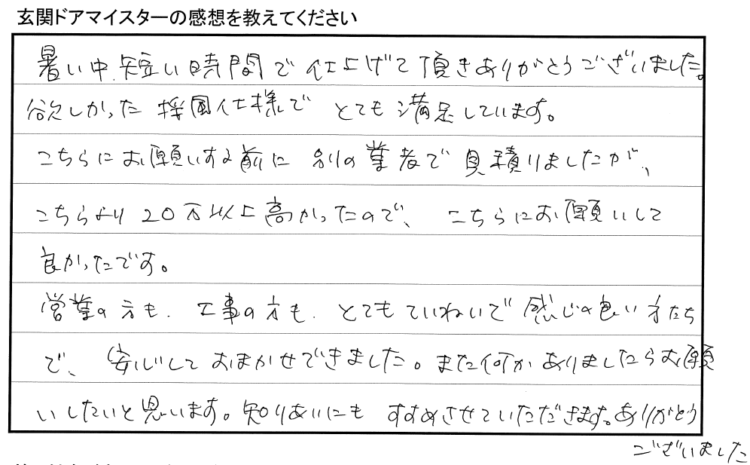 玄関ドアマイスターの感想を教えてください
暑い中、短い時間で仕上げて頂きありがとうございました。
欲しかった採風仕様でとても満足しています。
こちらにお願いする前に別の業者で見積りましたが、
こちらより20万以上高かったので、こちらにお願いして
良かったです。
営業の方も、工事の方も、とてもていねいで感じの良い方たち
で、安心しておまかせできました。また何かありましたらお願
いしたいと思います。知りあいにもすすめさせていただきます。ありがとう
ございました